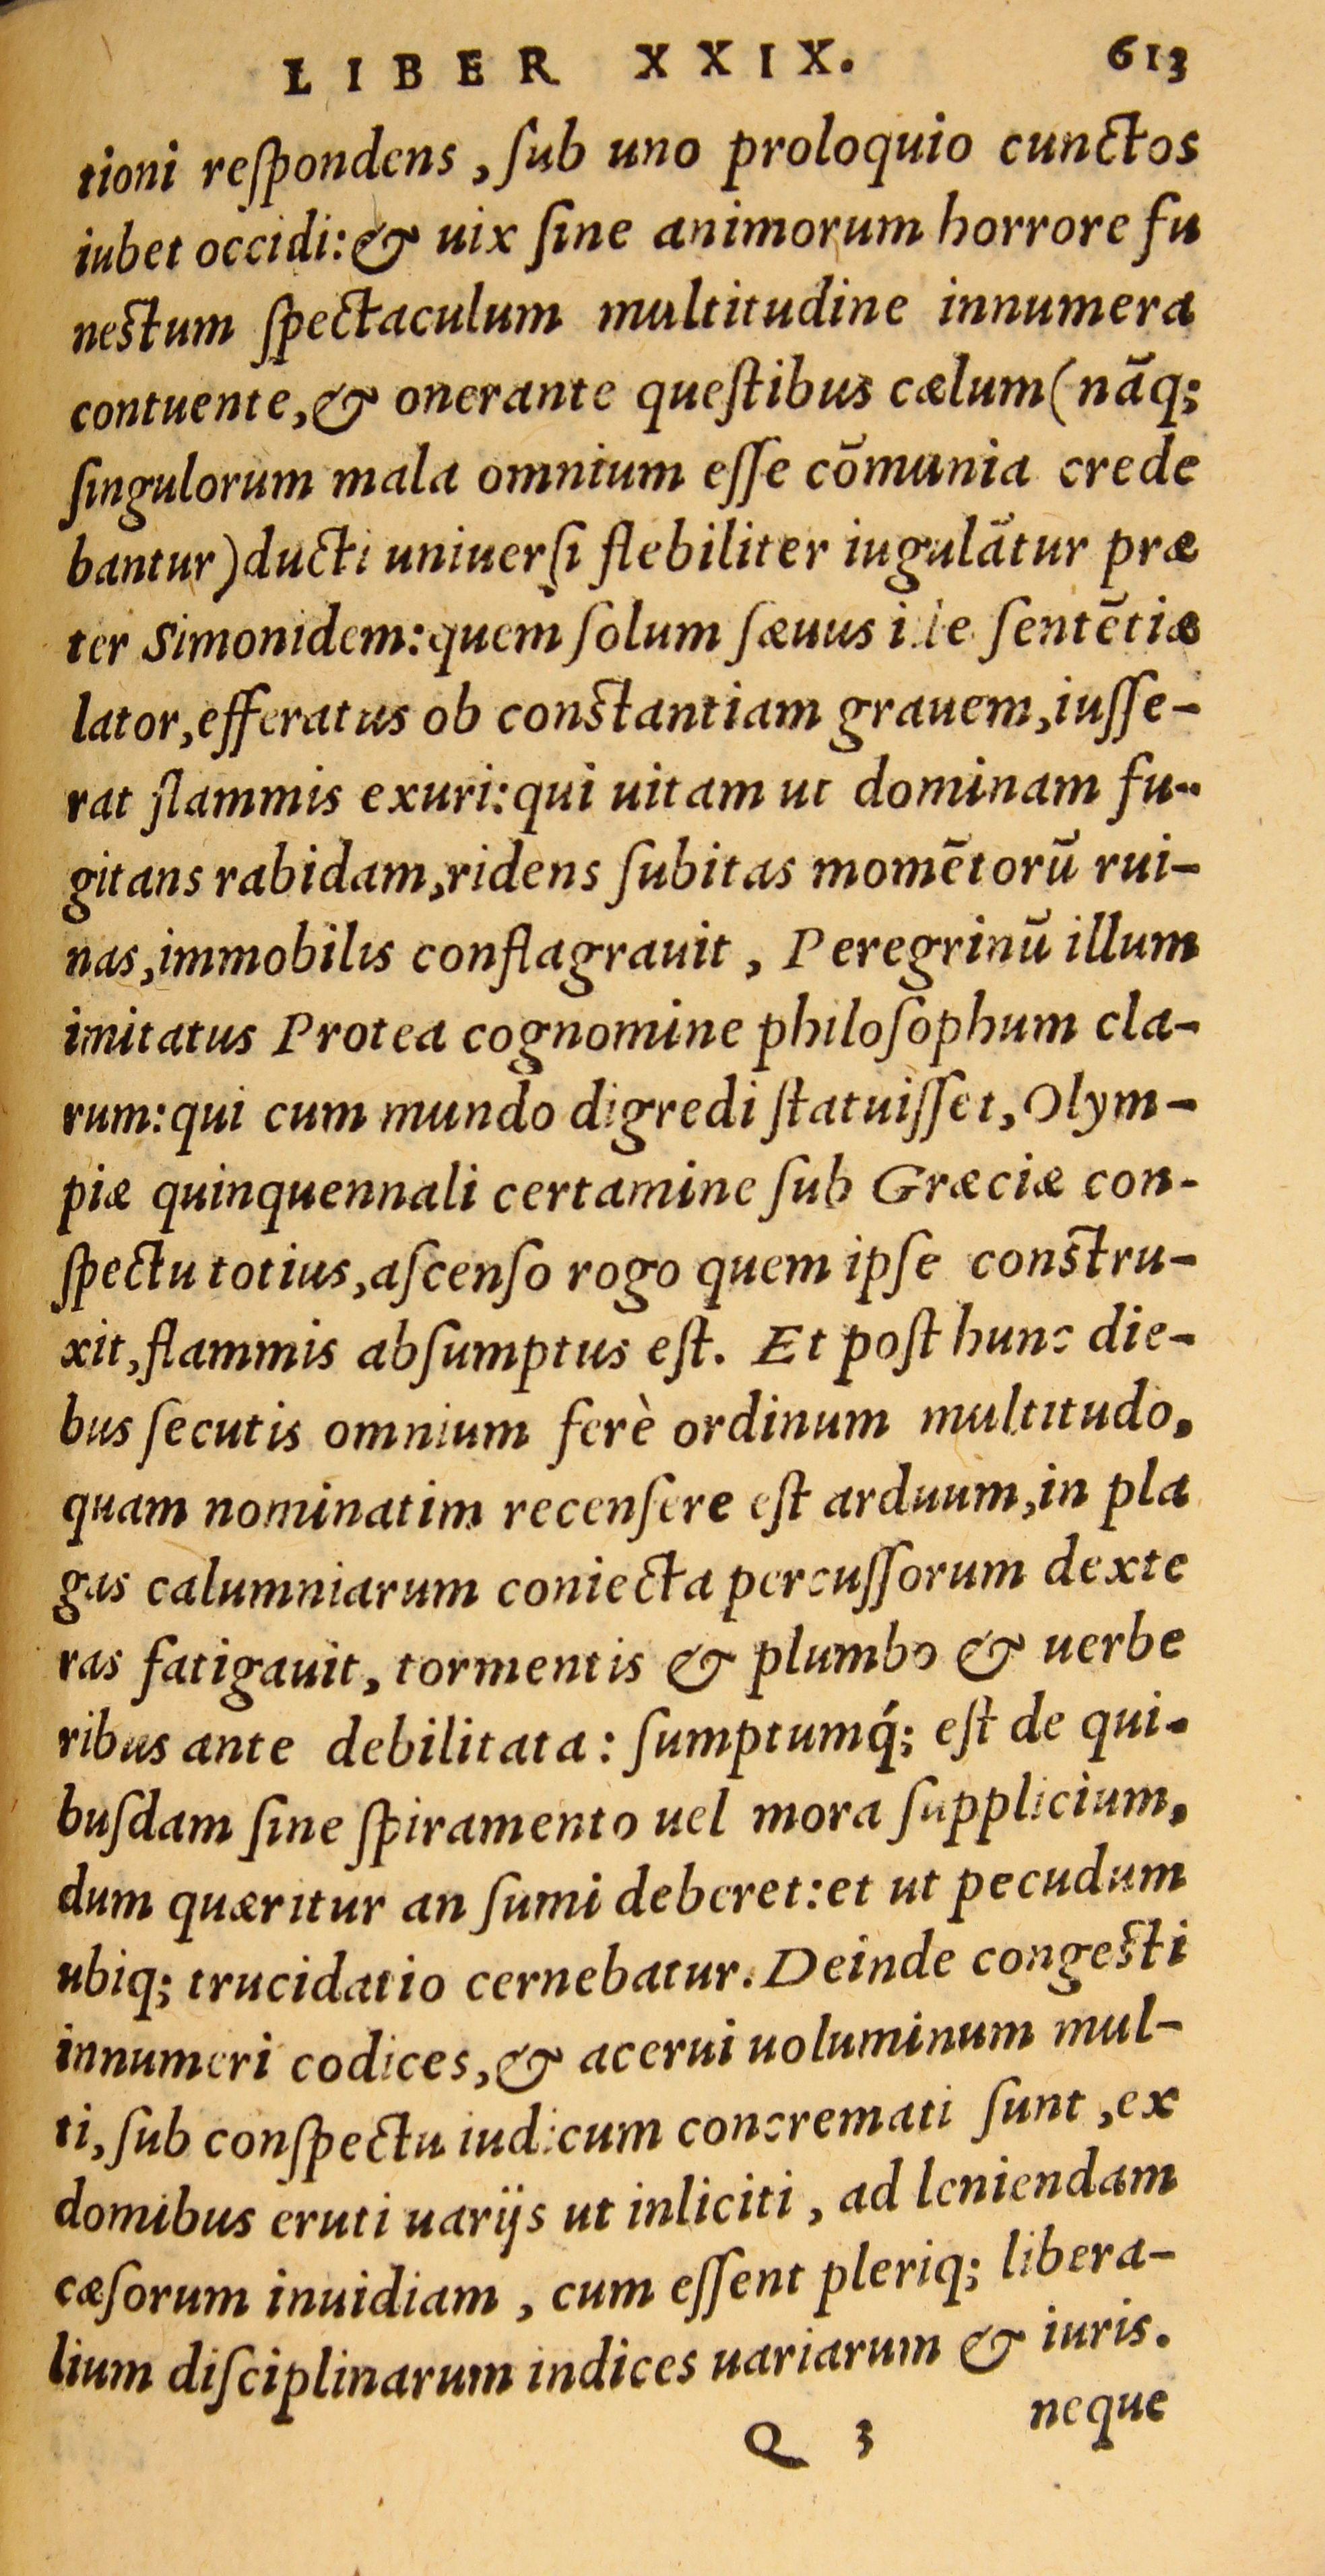 LIBER XXIX. 613
tioni reſpondens, ſub uno proloquio cunctos
iubet occidi: & uix ſine animorum horrore fu
neſtum ſpectaculum multitudine innumera
contuente, & onerante queſtibus cælum (nāq;
ſingulorum mala omnium eſſe cōmunia crede
bantur) ducti uniuerſi flebiliter iugulātur præ
ter Simonidem: quem ſolum ſæuus ille ſentētiæ
lator, efferatus ob conſtantiam grauem, iuſſe-
rat flammis exuri: qui uitam ut dominam fu-
gitans rabidam, ridens ſubitas momētorū rui-
nas, immobilis conflagrauit, Peregrinū illum
imitatus Protea cognomine philoſophum cla-
rum: qui cum mundo digredi ſtatuiſſet, Olym-
piæ quinquennali certamine ſub Græciæ con-
ſpectu totius, aſcenſo rogo quem ipſe conſtru-
xit, flammis abſumptus eſt. Et poſt hunc die-
bus ſecutis omnium ferè ordinum multitudo,
quam nominatim recenſere eſt arduum, in pla
gas calumniarum coniecta percuſſorum dexte
ras fatigauit, tormentis & plumbo & uerbe
ribus ante debilitata: ſumptumq́; eſt de qui-
buſdam ſine ſpiramento uel mora ſupplicium,
dum quæritur an ſumi deberet: et ut pecudum
ubiq; trucidatio cernebatur. Deinde congeſti
innumeri codices, & acerui uoluminum mul-
ti, ſub conſpectu iudicum concremati ſunt, ex
domibus eruti uarijs ut inliciti, ad leniendam
cæſorum inuidiam, cum eſſent pleriq; libera-
lium diſciplinarum indices uariarum & iuris.
neque
Q 3